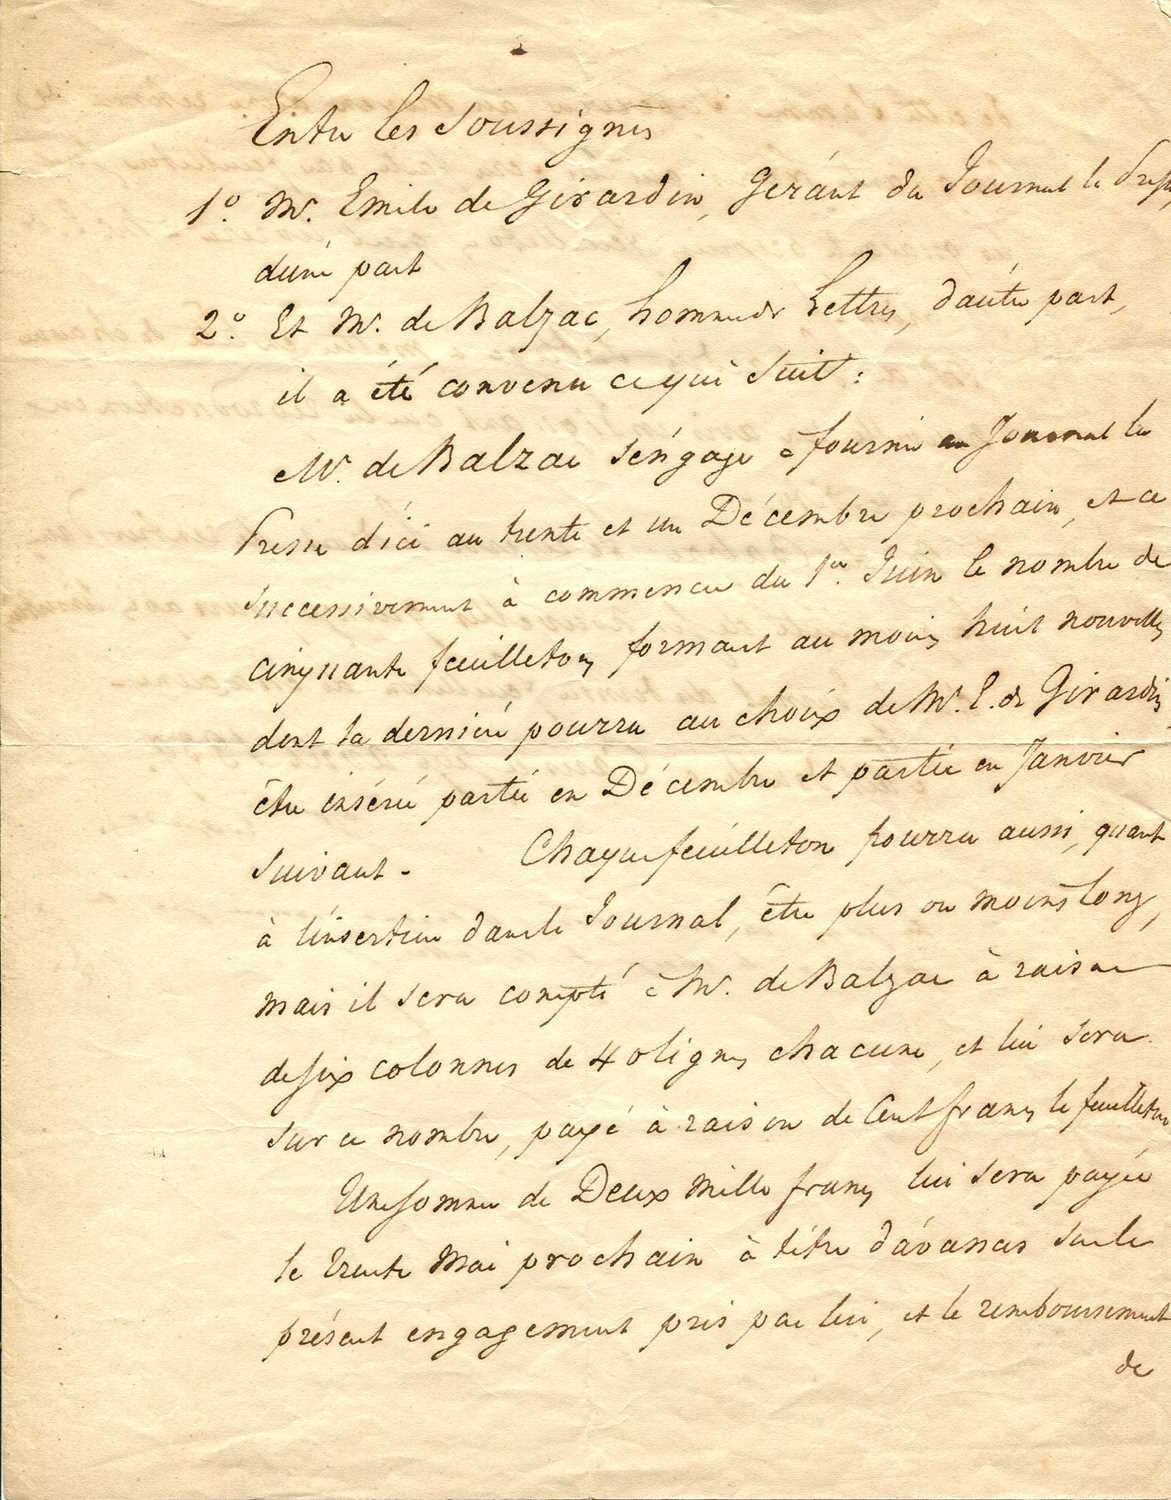 Entre les Soussignés
1º. Mr. Emile de Girardin, Gérant du Journal la Presse,
d'une part
2º. Et Mr. de Balzac, homme de Lettres, d'autre part,
il a été convenu ce qui suit :
Mr. de Balzac s'engage à fournir au Journal la
Presse d'ici au trente et un Décembre prochain, et ce
successivement à commencer du 1er. Juin le nombre de
cinquante feuilletons formant au moins huit nouvelles
dont la dernière pourra au choix de Mr. E. de Girardin
être insérée partie en Décembre et partie en Janvier
suivant - Chaque feuilleton pourra aussi, quant
à l'insertion dans le Journal, être plus ou moins long,
mais il sera compté à Mr. de Balzac à raison
de six colonnes de 40 lignes chacune, et lui sera
sur ce nombre, payé à raison de Cent francs le feuilleton
Une somme de Deux mille francs lui sera payée
le trente Mai prochain à titre d'avances sur le
présent engagement pris par lui, et le remboursement
de